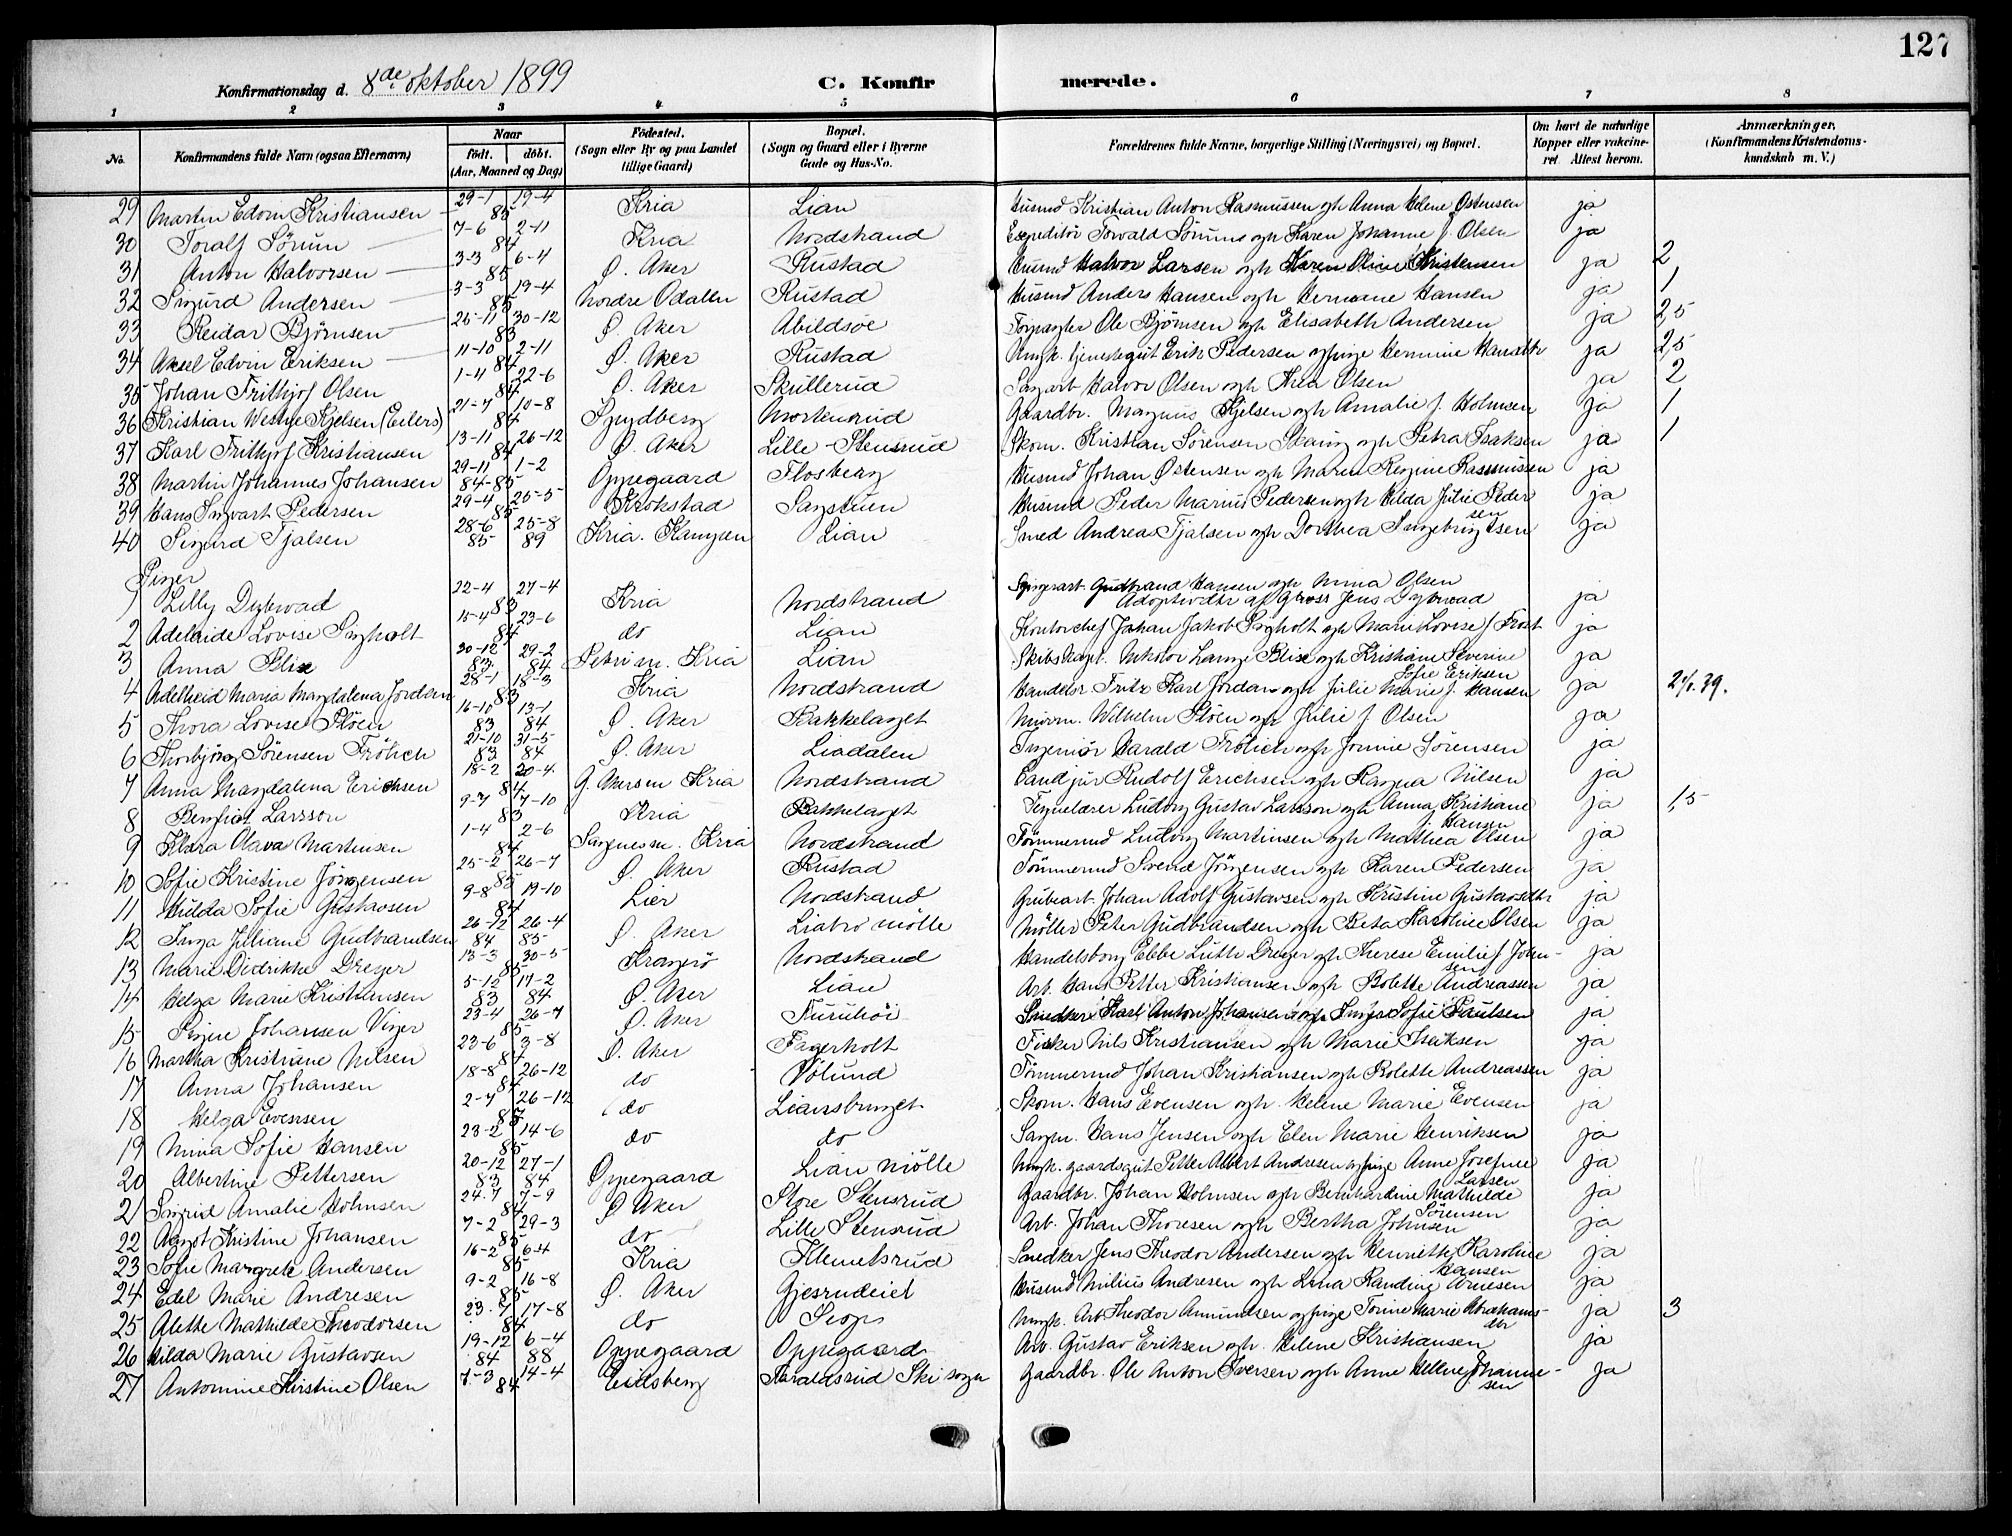 127
Konfirmationsdag d. 8de oktober 1899 C. Konfirmerede.
1 2 3 4 5 6 7 8
No. Konfirmandens fulde Navn (ogsaa Efternavn) Naar født. døbt. (Aar, Maaned og Dag) Fødested. (Sogn eller By og paa Landet tillige Gaard) Bopæl. (Sogn og Gaard eller i Byerne Gade og Hus-No. Forældrenes fulde Navne, borgerlige Stilling (Næringsvei) og Bopæl. Om havt de naturlige Kopper eller vakcineret Attest herom. Anmærkninger. (Konfirmandens Kristendomskundskab m. V.)
29 Martin Edvin Kristiansen 29-1 19-4 85 Kria Lian Husmd Kristian Anton Rasmussen ogh Anna Helene Østensen ja
30 Toralf Sörum 7-6 2-11 84 Kria Nordstrand Expeditör Torvald Sörum ogh Karen Johanne f. Olsen ja
31 Anton Halvorsen 3-3 6-4 85 Ø. Aker Rustad Husmd Halvor Larsen ogh Karen Oline Kristensen ja 2
32 Sigurd Andersen 3-3 19-4 85 Nordre Odalen Rustad Husmd Anders Hansen ogh Hermane Hansen ja 1
33 Reidar Björnsen 26-11 30-12 83 Ø. Aker Abildsöe Ole Björnsen ogh Elisabeth Andersen ja 2,5
34 Aksel Edvin Eriksen 11-10 2-11 84 Ø. Aker Rustad Ungk. tjenestegut Erik Pedersen og pige Hermine Hansdtr ja 2,5
35 Johan Frithjof Olsen 1-4 22-6 84 Ø. Aker Skullerud Sagarb Halvor Olsen ogh Thea Olsen ja 2
36 Kristian Westye Kjelsen (Eilers) 21-7 10-8 84 Spydberg Mortensrud Gaardbr. Magnus Kjelsen ogh Amalie f. Holmsen ja 1
37 Karl Frithjof Kristiansen 13-11 26-12 84 Ø. Aker Lille-Stensrud Skom. Kristian Sörensen Skaug ogh Petra Isaksen ja 1
38 Martin Johannes Johansen 29-11 1-2 84-85 Oppegaard Flosberg Husmd Johan Østensen ogh Maren Regine Rasmussen ja
39 Hans Ingvart Pedersen 29-4 25-5 85 Krokstad Sagstuen Husmd Peder Marius Pedersen ogh Hilda Julie Pedersen ja
40 Sigurd Tjalsen 28-6 25-8 85 89 Kria. Kampen Lian Smed Andreas Tjalsen ogh Dorthea Ingebrigtsen ja
Piger
1 Lilly Dybwad 22-4 27-4 83 Kria Nordstrand Gudbrand Hansen ogh Anna Olsen
Adoptivdtr af Gross Jens Dybwad ja
2 Adelaide Lovise Ingholt 15-4 23-6 84 do Lian Kontorchef Johan Jakob Ingholt ogh Marie Lovise f. Frost ja
3 Anna Blix 30-12 29-2 83 84 Petri m. Kria Lian Nikolai Lange Blix ogh Kristiane Severine
Sofie Eriksen ja
4 Adelheid Maria Magdalena Jordan 28-1 18-3 83 Kria Nordstrand Handelsr Fritz Karl Jordan ogh Julie Marie f. Hansen ja 2/1. 39.
5 Thora Lovise Plöen 16-10 13-1 83 84 Ø. Aker Bakkelaget Murm. Wilhelm Plöen ogh Julie f Olsen ja
6 Thorbjörg Sörensen Frölich 21-10 31-5 83 84 Ø. Aker Liadalen Ingeniör Harald Frölich ogh Jonnie Sörensen ja
7 Anna Magdalena Erichsen 18-2 20-4 84 G. Akersm Kria Nordstrand Candjur Rudolf Erichsen ogh Ragna Nilsen ja
8 Larsson 9-7 7-10 83 Kria Bakkelaget Tegnelærer Ludvig Gustav Larsson ogh Anna Kristiane
f Hansen ja 1,5
9 Klara Olava Martinsen 1-4 2-6 84 Sagenesm. Kria Nordstrand Tömmermd Ludvig Martinsen ogh Mathea Olsen ja
10 Sofie Kristine Jörgensen 25-2 26-7 85 Ø. Aker Rustad Tömmermd Svend Jörgensen ogh Karen Pedersen ja
11 Hulda Sofie Gustavsen 9-8 19-10 84 Lier Nordstrand Grubearb. Johan Adolf Gustavsen ogh Kristine Gustavsdtr ja
12 Inga Juliane Gudbrandsen 26-12 26-4 84 85 Ø. Aker Liabro mölle Möller Peter Gudbrandsen ogh Berta Karoline Olsen ja
13 Marie Didrikke Dreyer 13-3 30-5 85 Kragerö Nordstrand Handelsborg Ebbe Luth Dreyer ogh Therese Emilie f Johnsen ja
14 Helga Marie Kristiansen 5-12 17-2 83 84 Ø. Aker Lian Arb. Hans Petter Kristiansen ogh Bolette Andreassen ja
15 Signe Johansen Viger 23-4 26-7 85 Ø. Aker Furuhöi Snedker Karl Anton Johansen ogh Inger Sofie Paulsen ja
16 Martha Kristiane Nilsen 23-6 3-8 84 Ø. Aker Fagerholt Fisker Nils Kristiansen ogh Marie Isaksen ja
17 Anna Johansen 18-8 26-12 84 do Völund Tömmermd Johan Kristiansen ogh Bolette Andreassen ja
18 Helga Evensen 2-7 26-12 do Liansbruget Skom. Hans Evensen ogh. Helene Marie Evensen ja
19 Mina Sofie Hansen 23-2 14-6 85 do do Sagm. Hans Jensen ogh Elen Marie Henriksen ja
20 Albertine Pettersen 20-12 27-1 83 84 Oppegaard Lian mölle Ungk. gaardsgut Petter Albert Andresen og pige Anne Josefine
Larsen ja
21 Sigrid Amalie Holmsen 24-7 7-9 84 Ø Aker Store Stensrud Gaardbr. Johan Holmsen ogh Bernhardine Mathilde
Sörensen ja
22 Aagot Kristine Johansen 7-2 29-3 85 do Lille Stensrud Arb. Johan Thoresen ogh Bertha Johnsen ja
23 Sofie Margrete Andersen 16-2 6-4 85 Kria Klemetsrud Snedker Jens Theodor Andersen ogh Henriette Karoline
Hansen ja
24 Edel Marie Andresen 9-2 16-8 85 Ø. Aker Gjersrudeiet Husmd Milius Andresen ogh Lina Randine Arnesen ja
25 Alette Mathilde Theodorsen 23-7 17-8 84 do Ungk. Arb Theodor Amundsen og pige Torine Marie Abrahamsdtr ja 3
26 Hilda Marie Gustavsen 19-12 6-4 84 88 Oppegaard Oppegaard Arb. Gustav Eriksen ogh. Helene Kristiansen ja
27 Antonine Kristine Olsen 7-3 14-4 84 Eidsberg Haraldsrud Ski sogn Gaardbr. Ole Anton Iversen ogh Anne Helene Johannesen ja